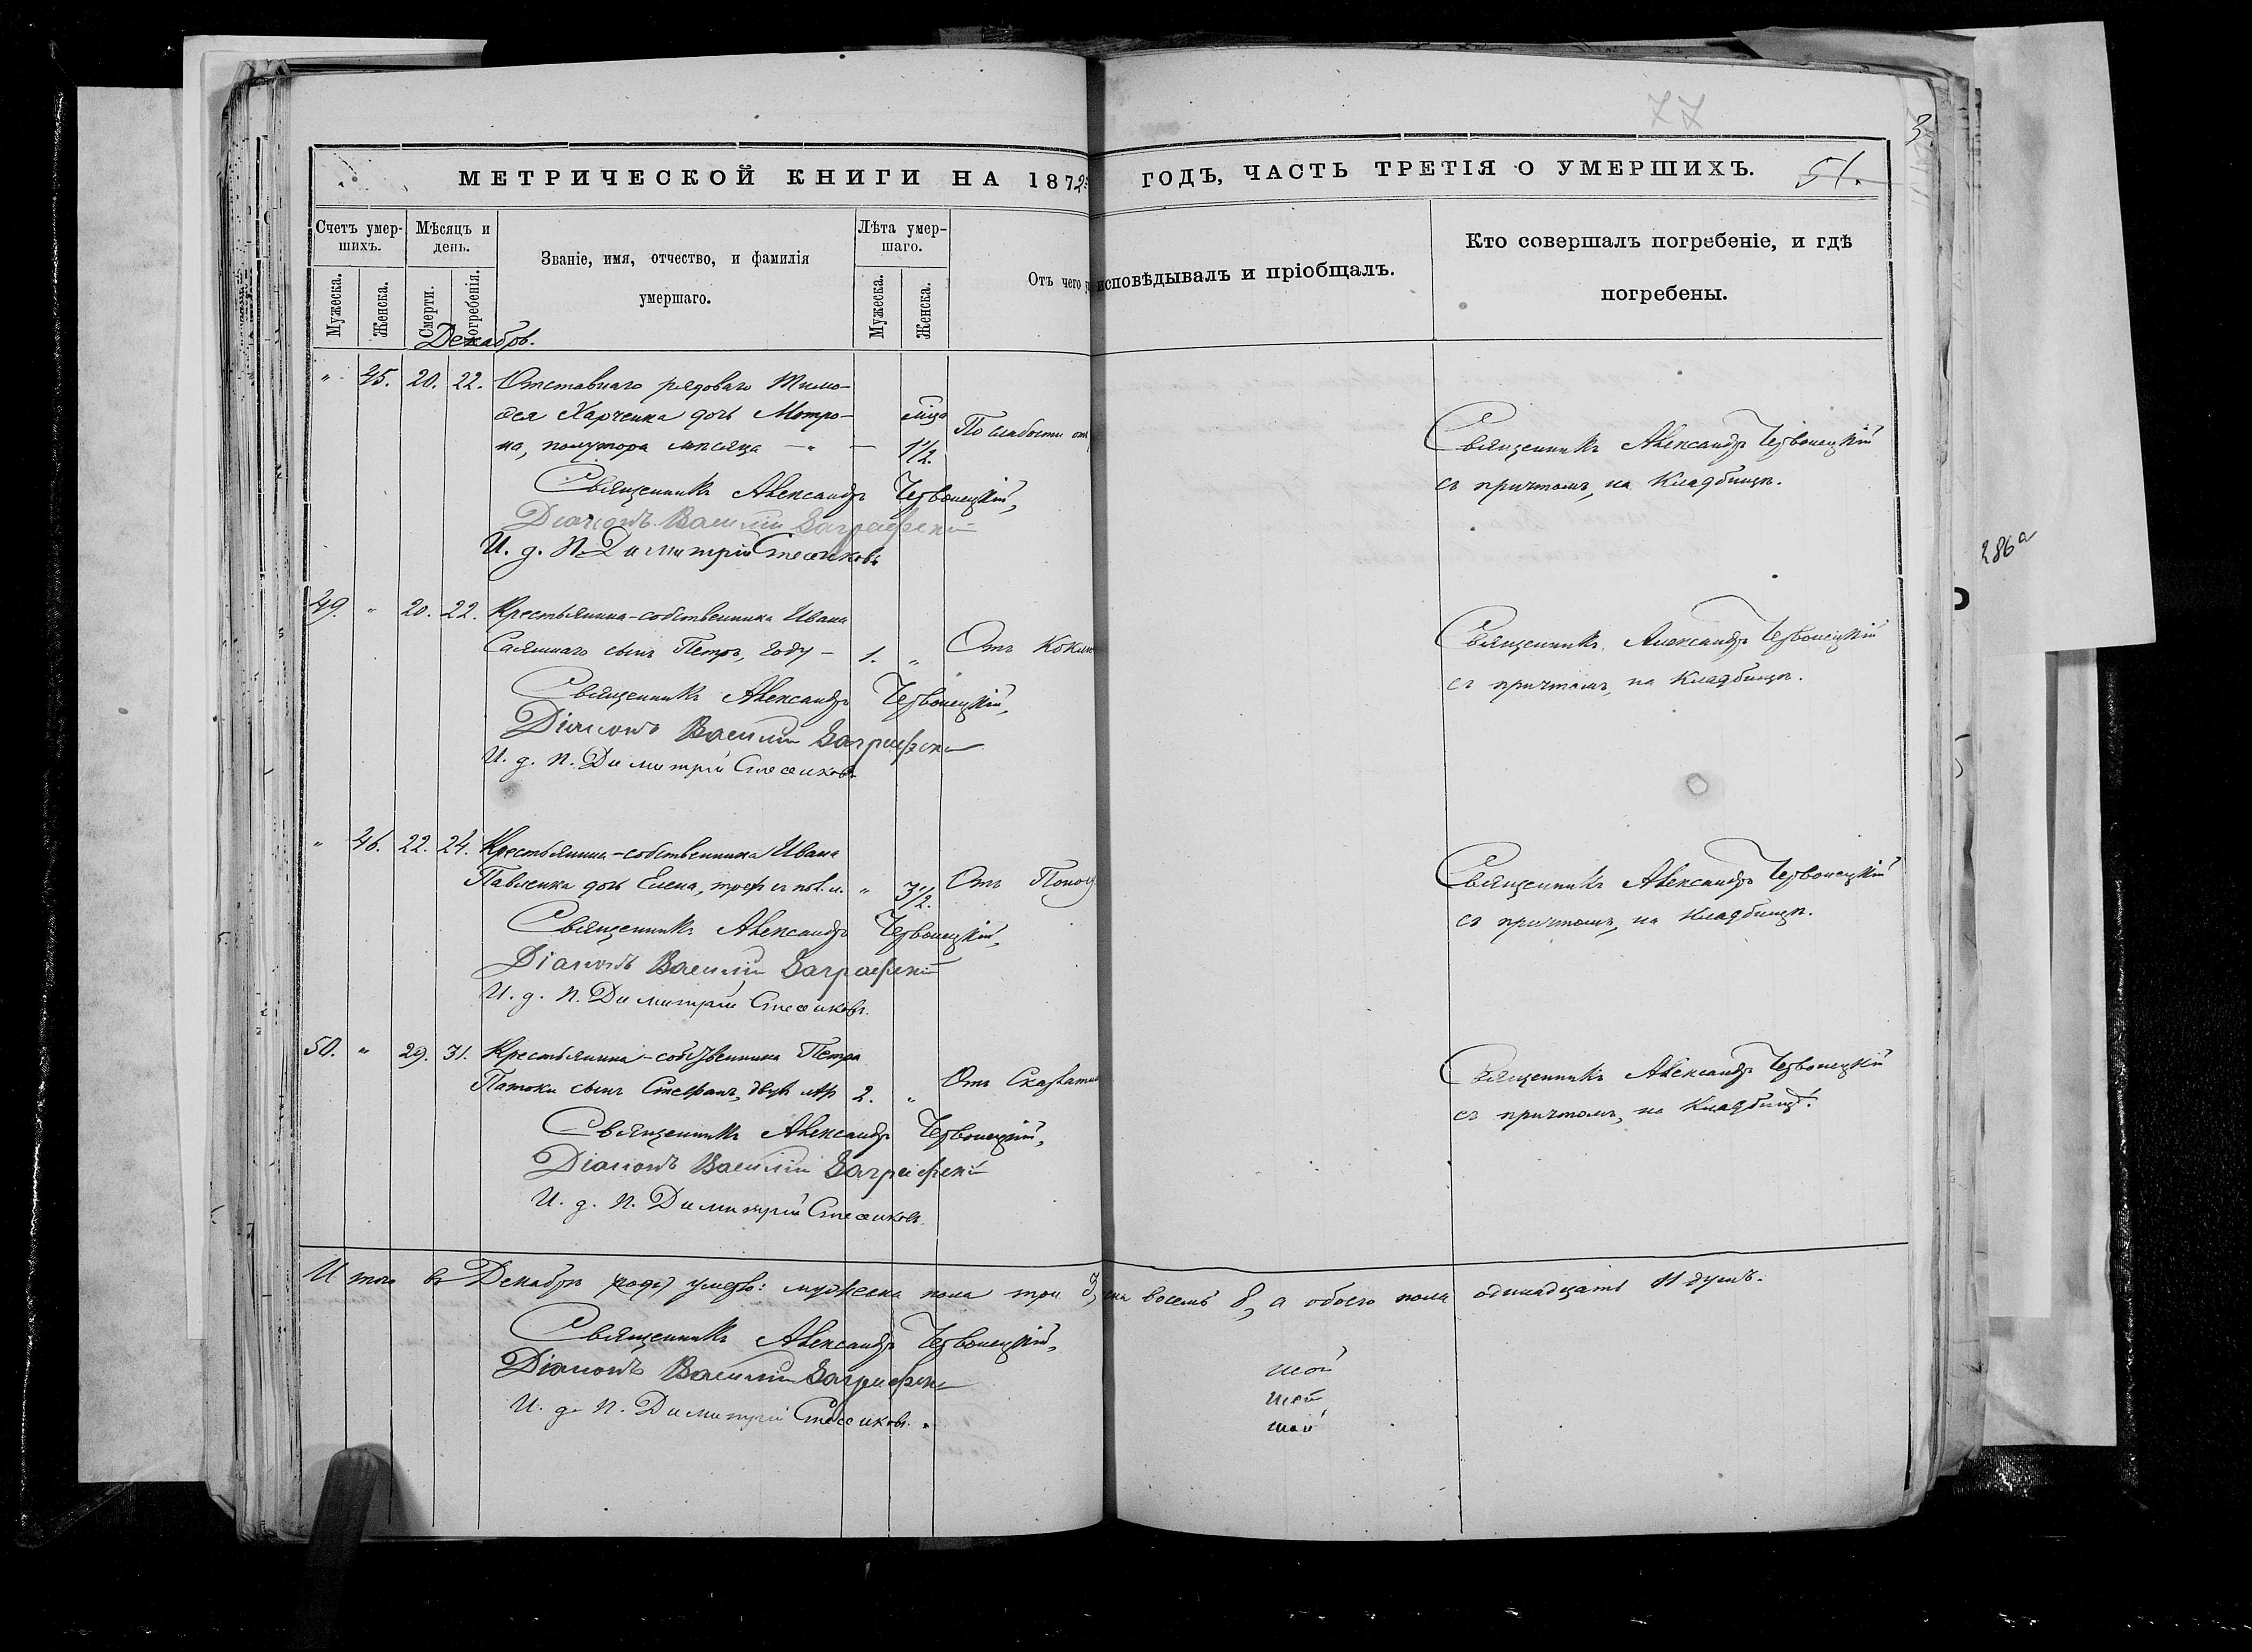 77
МЕТРИЧЕСКОЙ КНИГИ НА 1872 ГОДЪ, ЧАСТЬ ТРЕТІЯ О УМЕРШИХЪ. 51.
Счетъ умер-
шихъ.
Мужеска.
Женска.
Мѣсяцъ и
день.
Смерти.
погребенія.
Званіе, имя, отчество, и фамилія
умершаго.
Лѣта умер-
шаго.
Мужеска.
Женска.
Отъ чего
исповѣдывалъ и пріобщалъ.
Кто совершалъ погребеніе, и гдѣ
погребены.
Декабрь.
" 45. 20. 22. Отставнаго рядоваго Тимо-
ѳея Харченка дочь Матро-
на, полутора мѣсяца — " — 1 1/2. По слабости
Священникъ Александръ Червонецкій
съ причтомъ, на кладбищѣ.
Священникъ Александръ Червонецкій,
Діаконъ Василій
И. д. П. Димитрій
49. " 20. 22. Крестьянина-собственника Ивана
сынъ Петръ, году — 1. " Отъ
Священникъ Александръ Червонецкій
съ причтомъ, на кладбищѣ.
Священникъ Александръ Червонецкій,
Діаконъ Василій
И. д. П. Димитрій
" 46. 22. 24. Крестьянина-собственника Ивана
Павленка дочь Елена, трехъ съ пол. л. " 3 1/2. Отъ
Священникъ Александръ Червонецкій
съ причтомъ, на кладбищѣ.
Священникъ Александръ Червонецкій,
Діаконъ Василій
И. д. П. Димитрій
50. " 29. 31. Крестьянина-собственника Петра
Патоки сынъ Стефанъ, двухъ лѣтъ 2. " Отъ
Священникъ Александръ Червонецкій
съ причтомъ, на кладбищѣ.
Священникъ Александръ Червонецкій,
Діаконъ Василій
И. д. П. Димитрій
Итого въ Декабрѣ умерло: мужеска пола три 3, восемь 8, а обоего пола одинадцать 11 душъ.
Священникъ Александръ Червонецкій,
Діаконъ Василій
И. д. П. Димитрій
286а